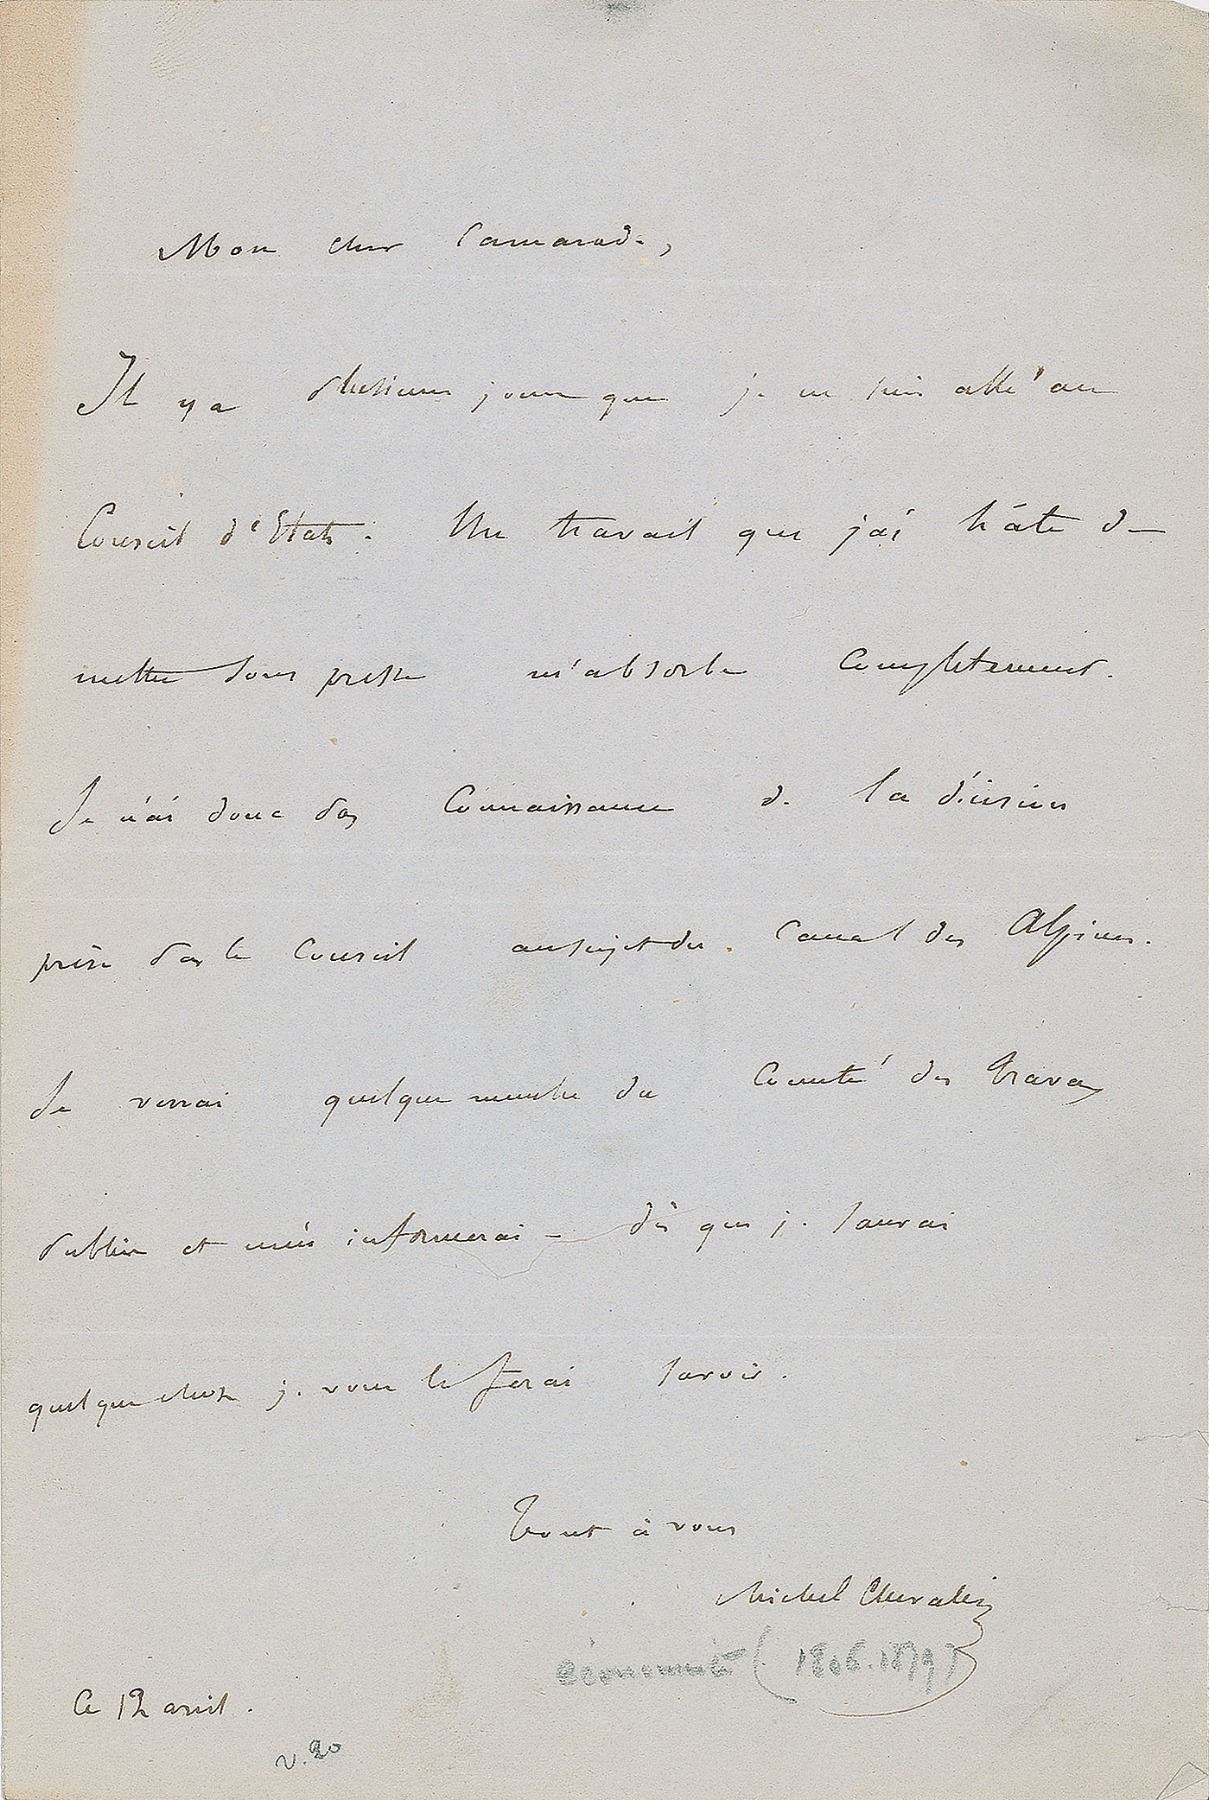 Mon cher Camarade,
Il y a plusieurs jours que je ne suis allé au
Conseil d'Etat. Un travail que j'ai hâte de
mettre sous presse m'absorbe complètement.
Je n'ai donc pas connaissance de la décision
prise par le Conseil au sujet du Canal des Alpines.
Je verrai quelque membre du Comité des Travaux
publics et m'en informerai – dès que je saurai
quelque chose je vous le ferai savoir.
Tout à vous
Michel Chevalier
économiste (1806.1879)
Ce 12 avril.
v. 20